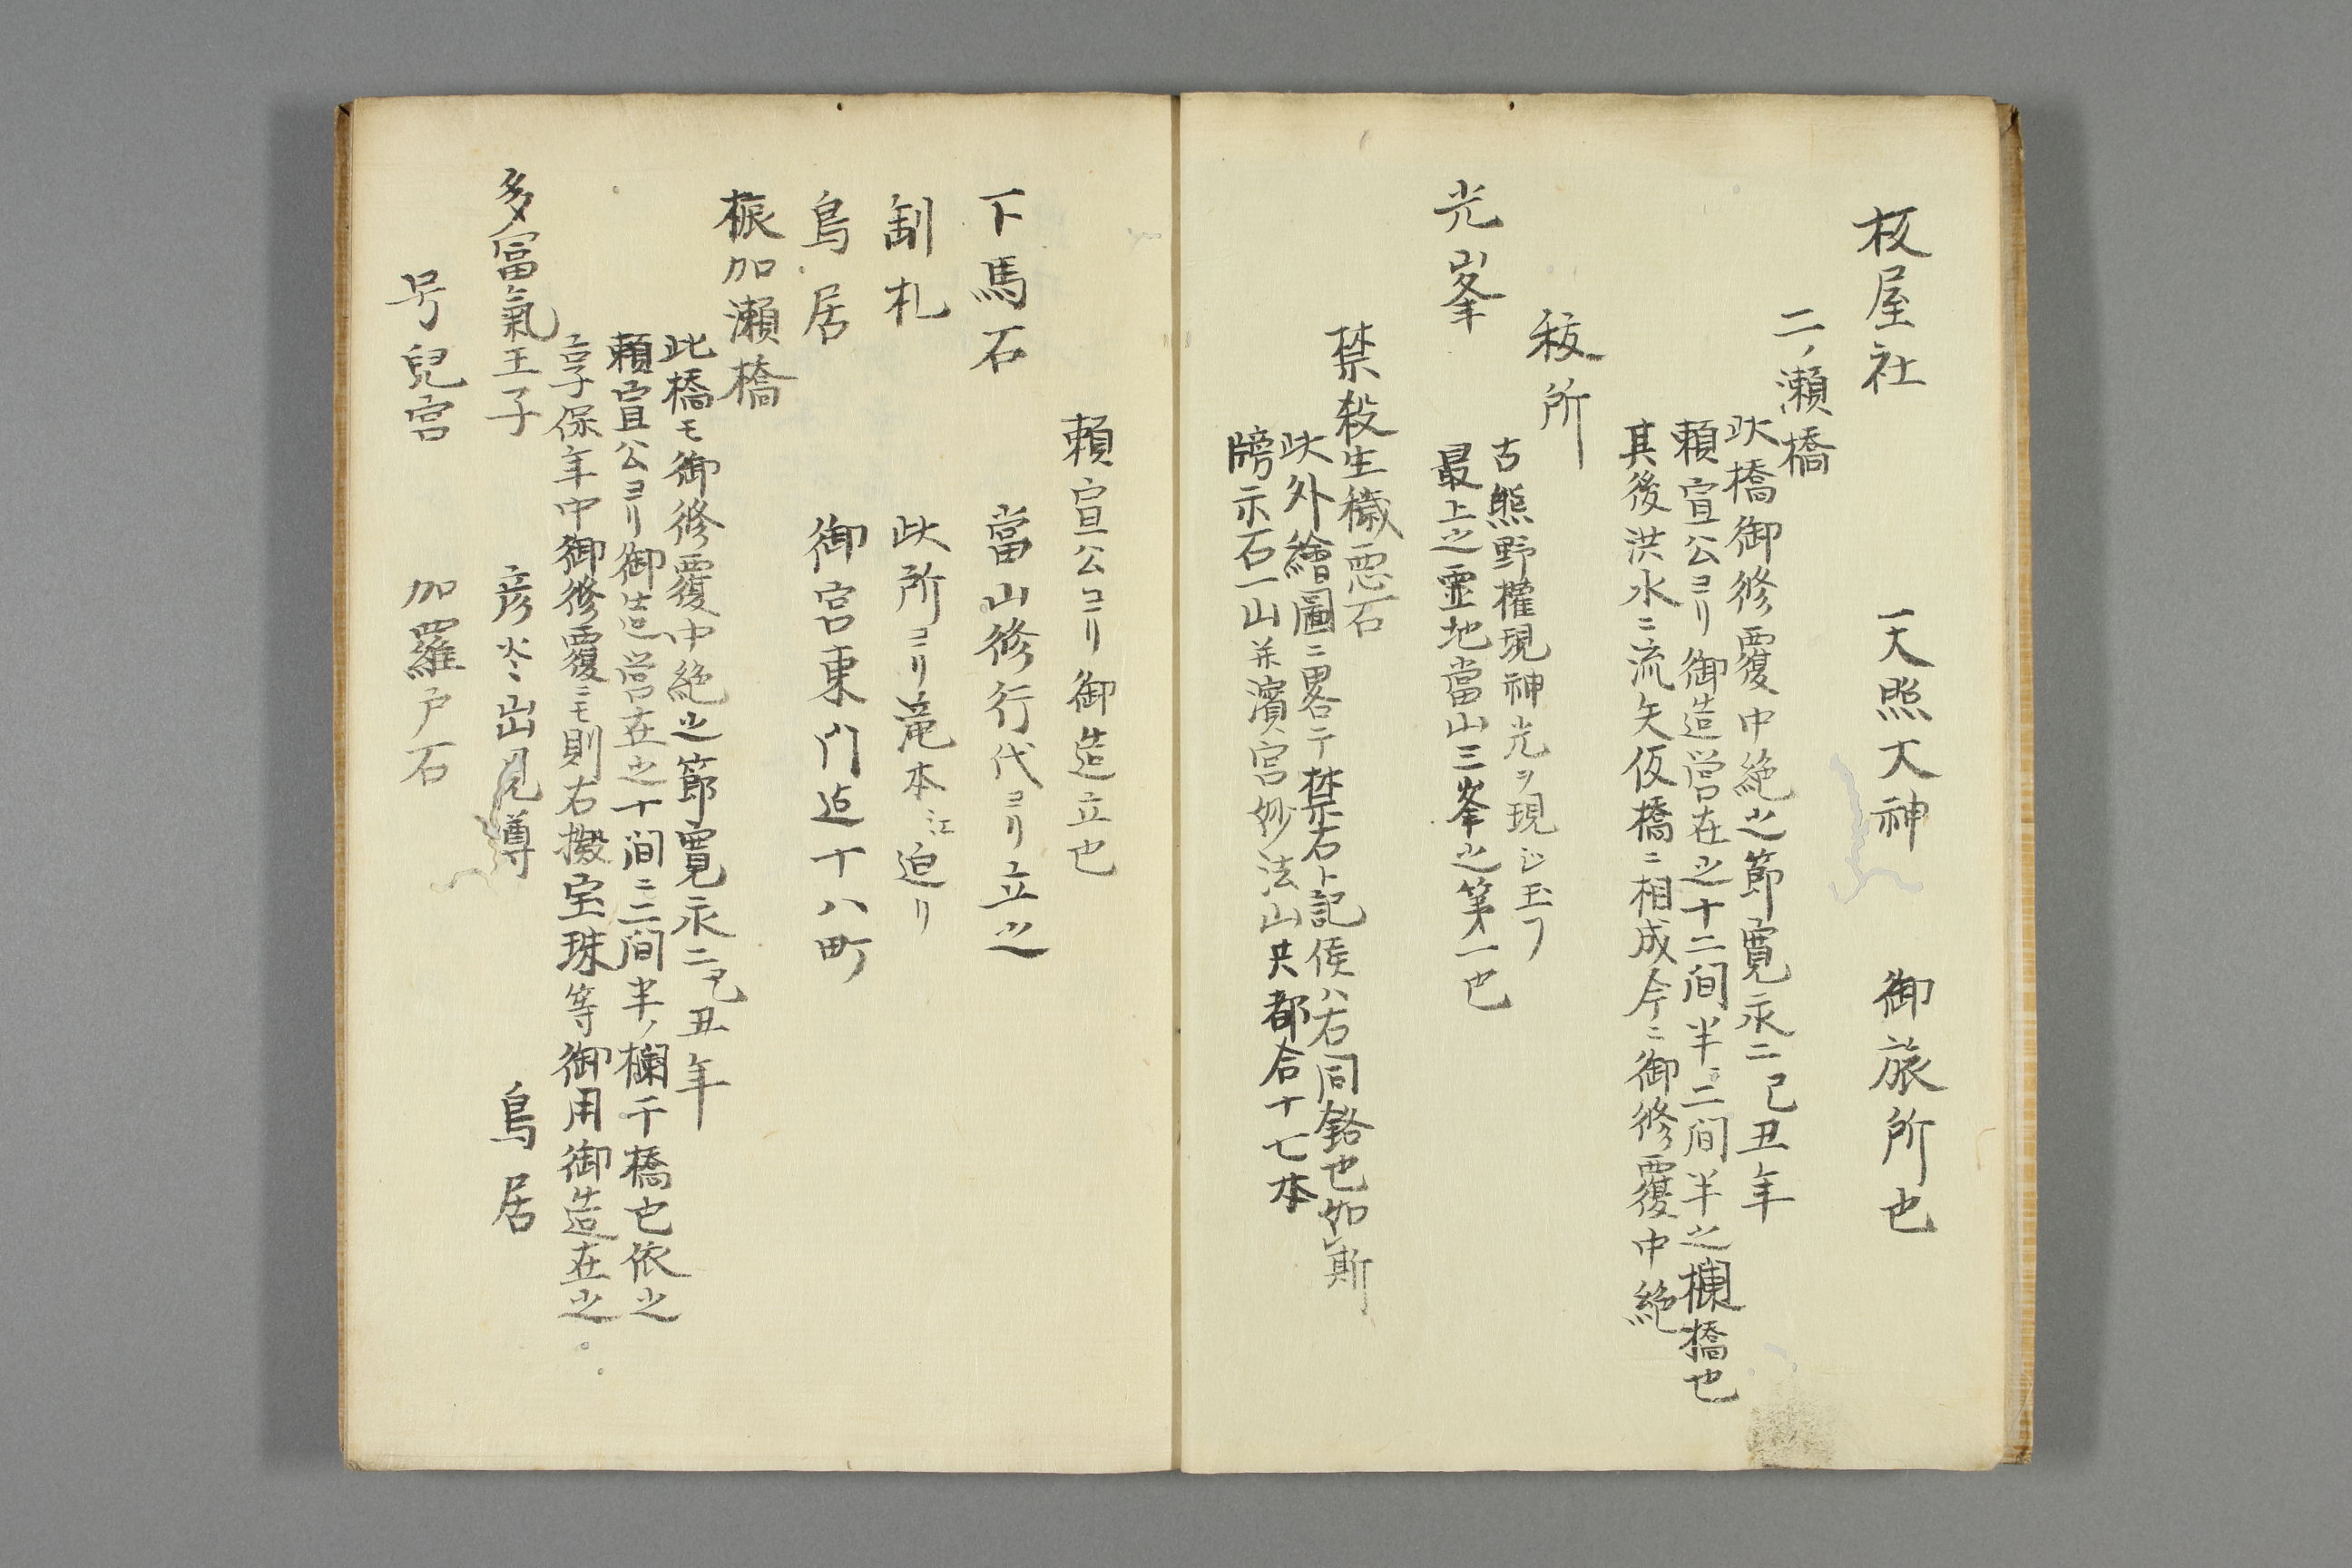 板屋社　天照大神　御旅所也
二ノ瀬橋
此橋御修覆中絶之節寛永二己丑年
頼宣公ヨリ御造営在之十二间半ニ二间半之欄橋也
其後洪水ニ流矢仮橋ニ相成今ニ御修覆中絶
秡所
古熊野權現神光ヲ現シ玉フ
光峯　最上之霊地當山三峯之第一也
禁殺生穢悪石
此外繪圖ニ畧テ禁石ト記候ハ右同銘也如斯
牓示石一山并濱宮妙法山共都合十七本
頼宣公ヨリ御造立也
下馬石　當山修行代ヨリ立之
制札　此所ヨリ滝本江迫リ
鳥居　御宮東門迠十八町
振加瀬橋
此橋モ御修覆中絶之節寛永二己丑年
頼宣公ヨリ御造営在之十间ニ二间半ノ欄干橋也依之
享保年中御修覆ニモ則右擬宝珠等御用御造在之
多富氣王子　彦火々出見尊　鳥居
号兒宮　加羅戸石